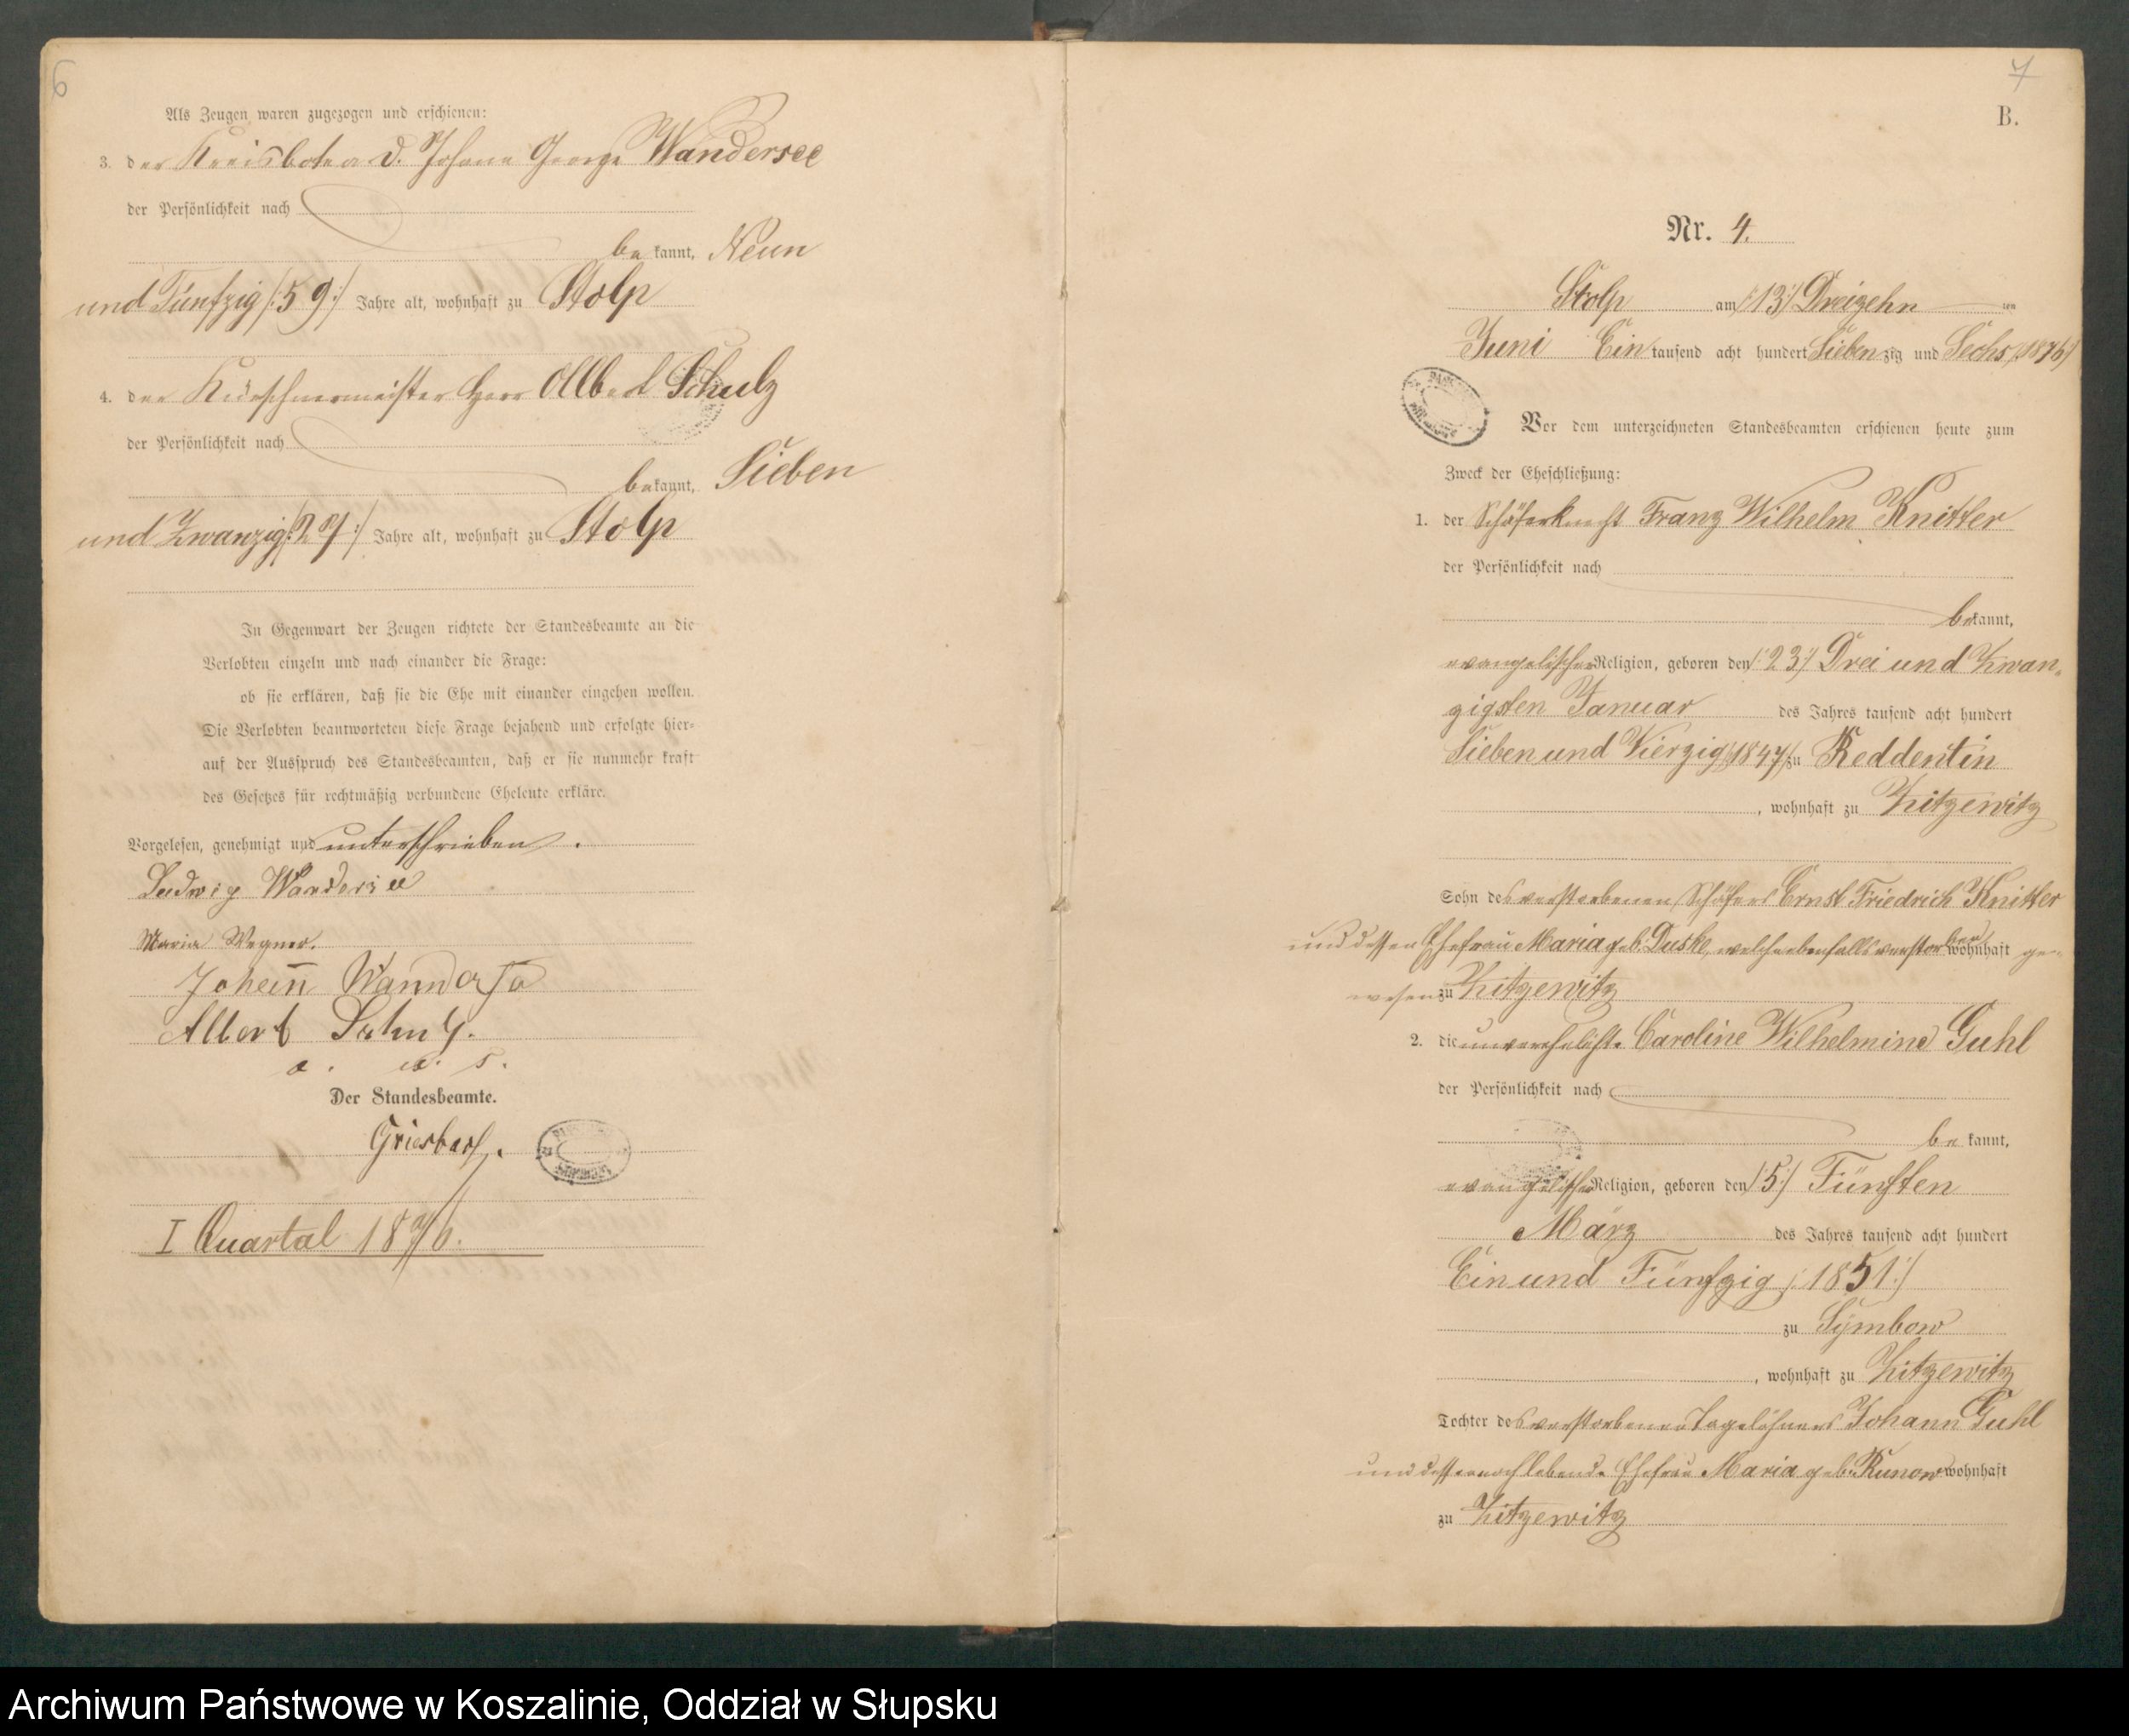 6
Als Zeugen waren zugezogen und erschienen:
3. der Kreisbote a. D. Johann George Wandersee
der Persönlichkeit nach
bekannt, Neun
und Fünfzig /:59:/ Jahre alt, wohnhaft zu Stolp
4. der Kürschnermeister Herr Albert Schulz
der Persönlichkeit nach
bekannt, Sieben
und Zwanzig /:27:/ Jahre alt, wohnhaft zu Stolp
In Gegenwart der Zeugen richtete der Standesbeamte an die
Verlobten einzeln und nach einander die Frage:
ob sie erklären, daß sie die Ehe mit einander eingehen wollen.
Die Verlobten beantworteten diese Frage bejahend und erfolgte hier-
auf der Ausspruch des Standesbeamten, daß er sie nunmehr kraft
des Gesetzes für rechtmäßig verbundene Eheleute erkläre.
Vorgelesen, genehmigt und unterschrieben.
Ludwig Wandersee
Maria Wegner.
Johann
Albert Schulz.
a. u. s.
Der Standesbeamte.
Griesbach.
I Quartal 1876.
7
B.
Nr. 4.
Stolp am /:13:/ Dreizehn ten
Juni Ein tausend acht hundert Siebenzig und Sechs /:1876:/
Vor dem unterzeichneten Standesbeamten erschienen heute zum
Zweck der Eheschließung:
1. der Schäferknecht Franz Wilhelm Knitter
der Persönlichkeit nach
bekannt,
evangelischer Religion, geboren den /:23:/ Drei und Zwan-
zigsten Januar des Jahres tausend acht hundert
Sieben und Vierzig /:1847:/ zu Reddentin
, wohnhaft zu Zitzewitz
Sohn des verstorbenen Schäfers Ernst Friedrich Knitter
und dessen Ehefrau Maria geb: Duske, welche ebenfalls verstorben wohnhaft ge-
wesen zu Zitzewitz
2. die unverehelichte Caroline Wilhelmine Guhl
der Persönlichkeit nach
bekannt,
evangelischer Religion, geboren den /:5:/ Fünften
März des Jahres tausend acht hundert
Ein und Fünfzig /:1851:/
zu Symbow
, wohnhaft zu Zitzewitz
Tochter des verstorbenen Tagelöhners Johann Guhl
und dessen noch lebende Ehefrau Maria geb: Runow wohnhaft
zu Zitzewitz
Archiwum Państwowe w Koszalinie, Oddział w Słupsku